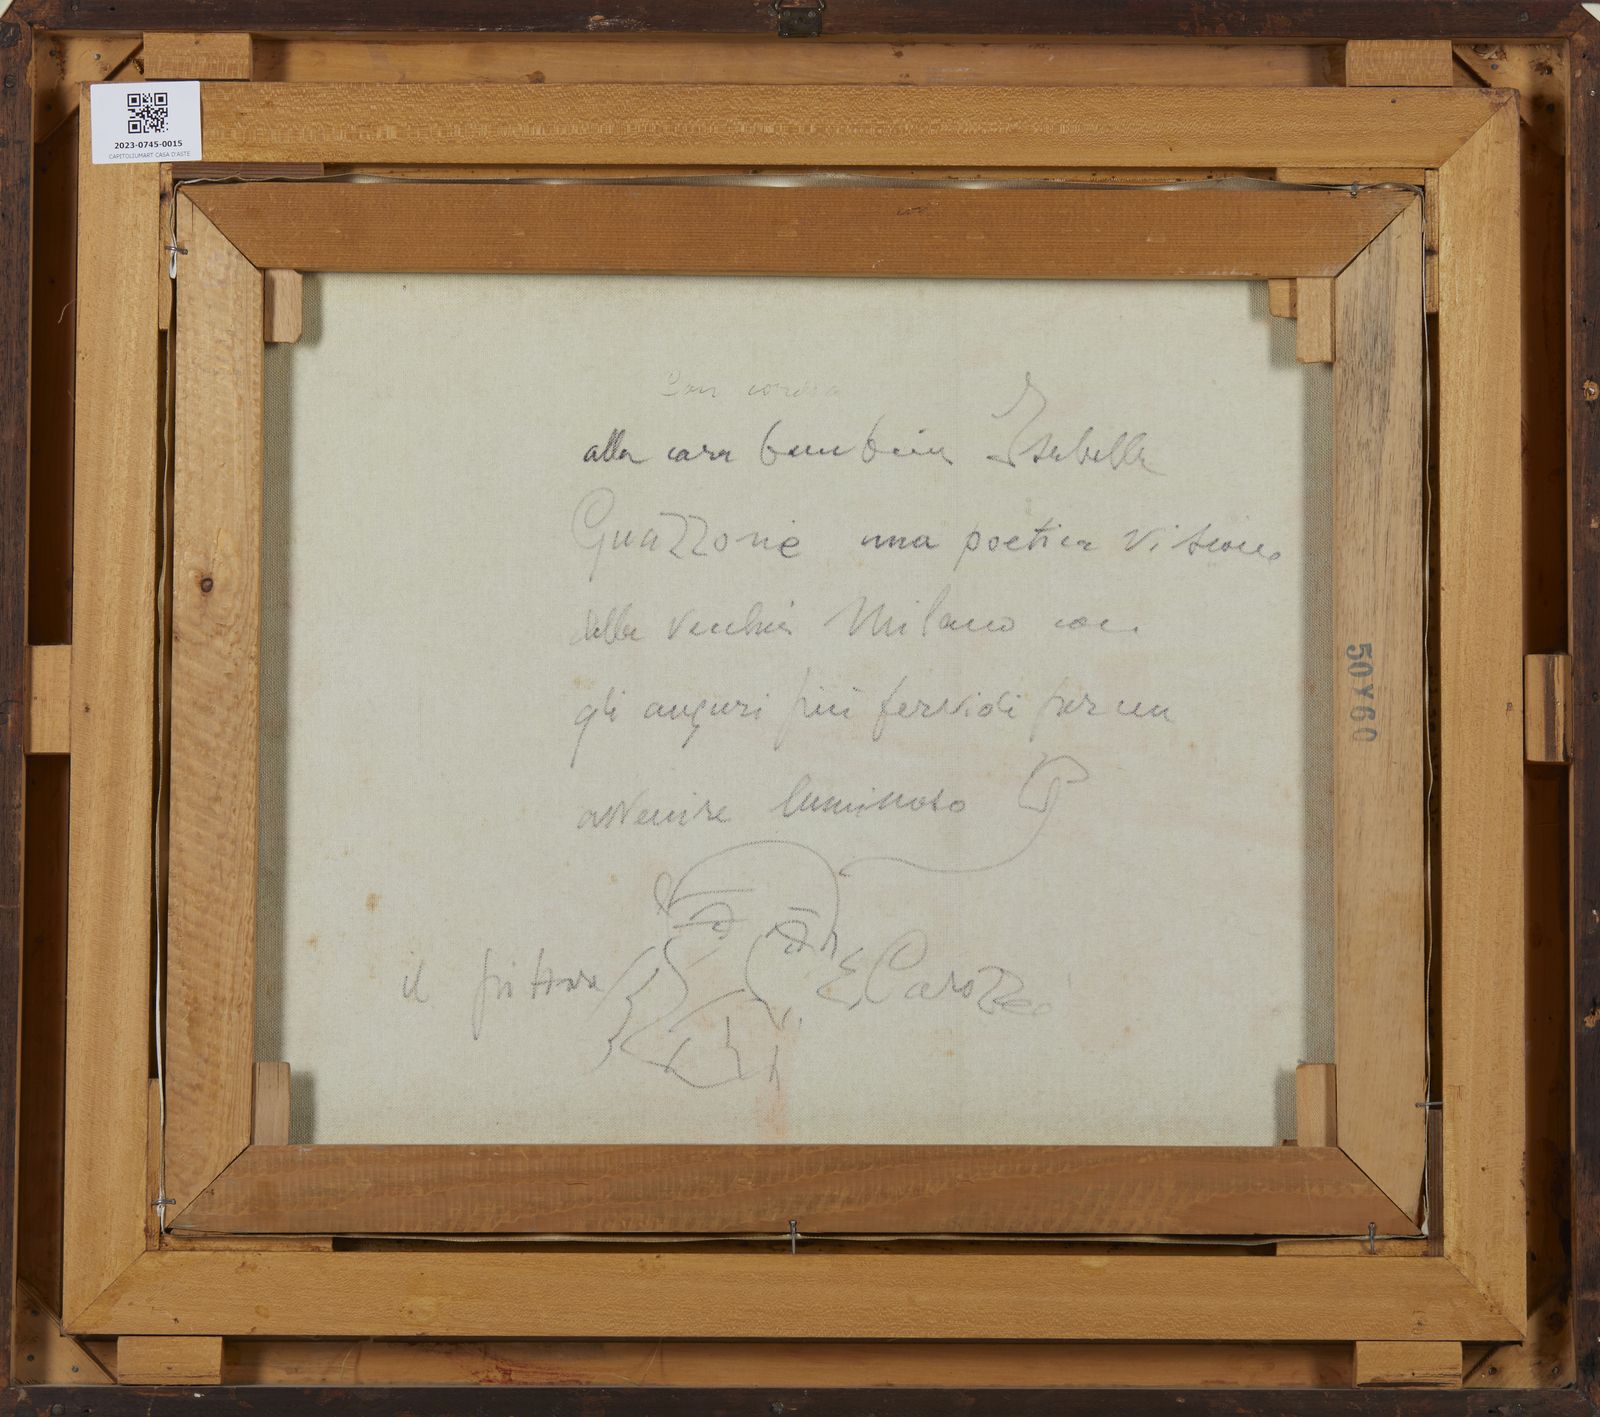 2023-0745-0015
CAPITOLIUMART CASA D'ASTE
Con
alla cara bambina Isabella
Guazzone una poetica visione
della vecchia Milano con
gli auguri più fervidi per un
avvenire luminoso
il pittore E Carozzo
50X60